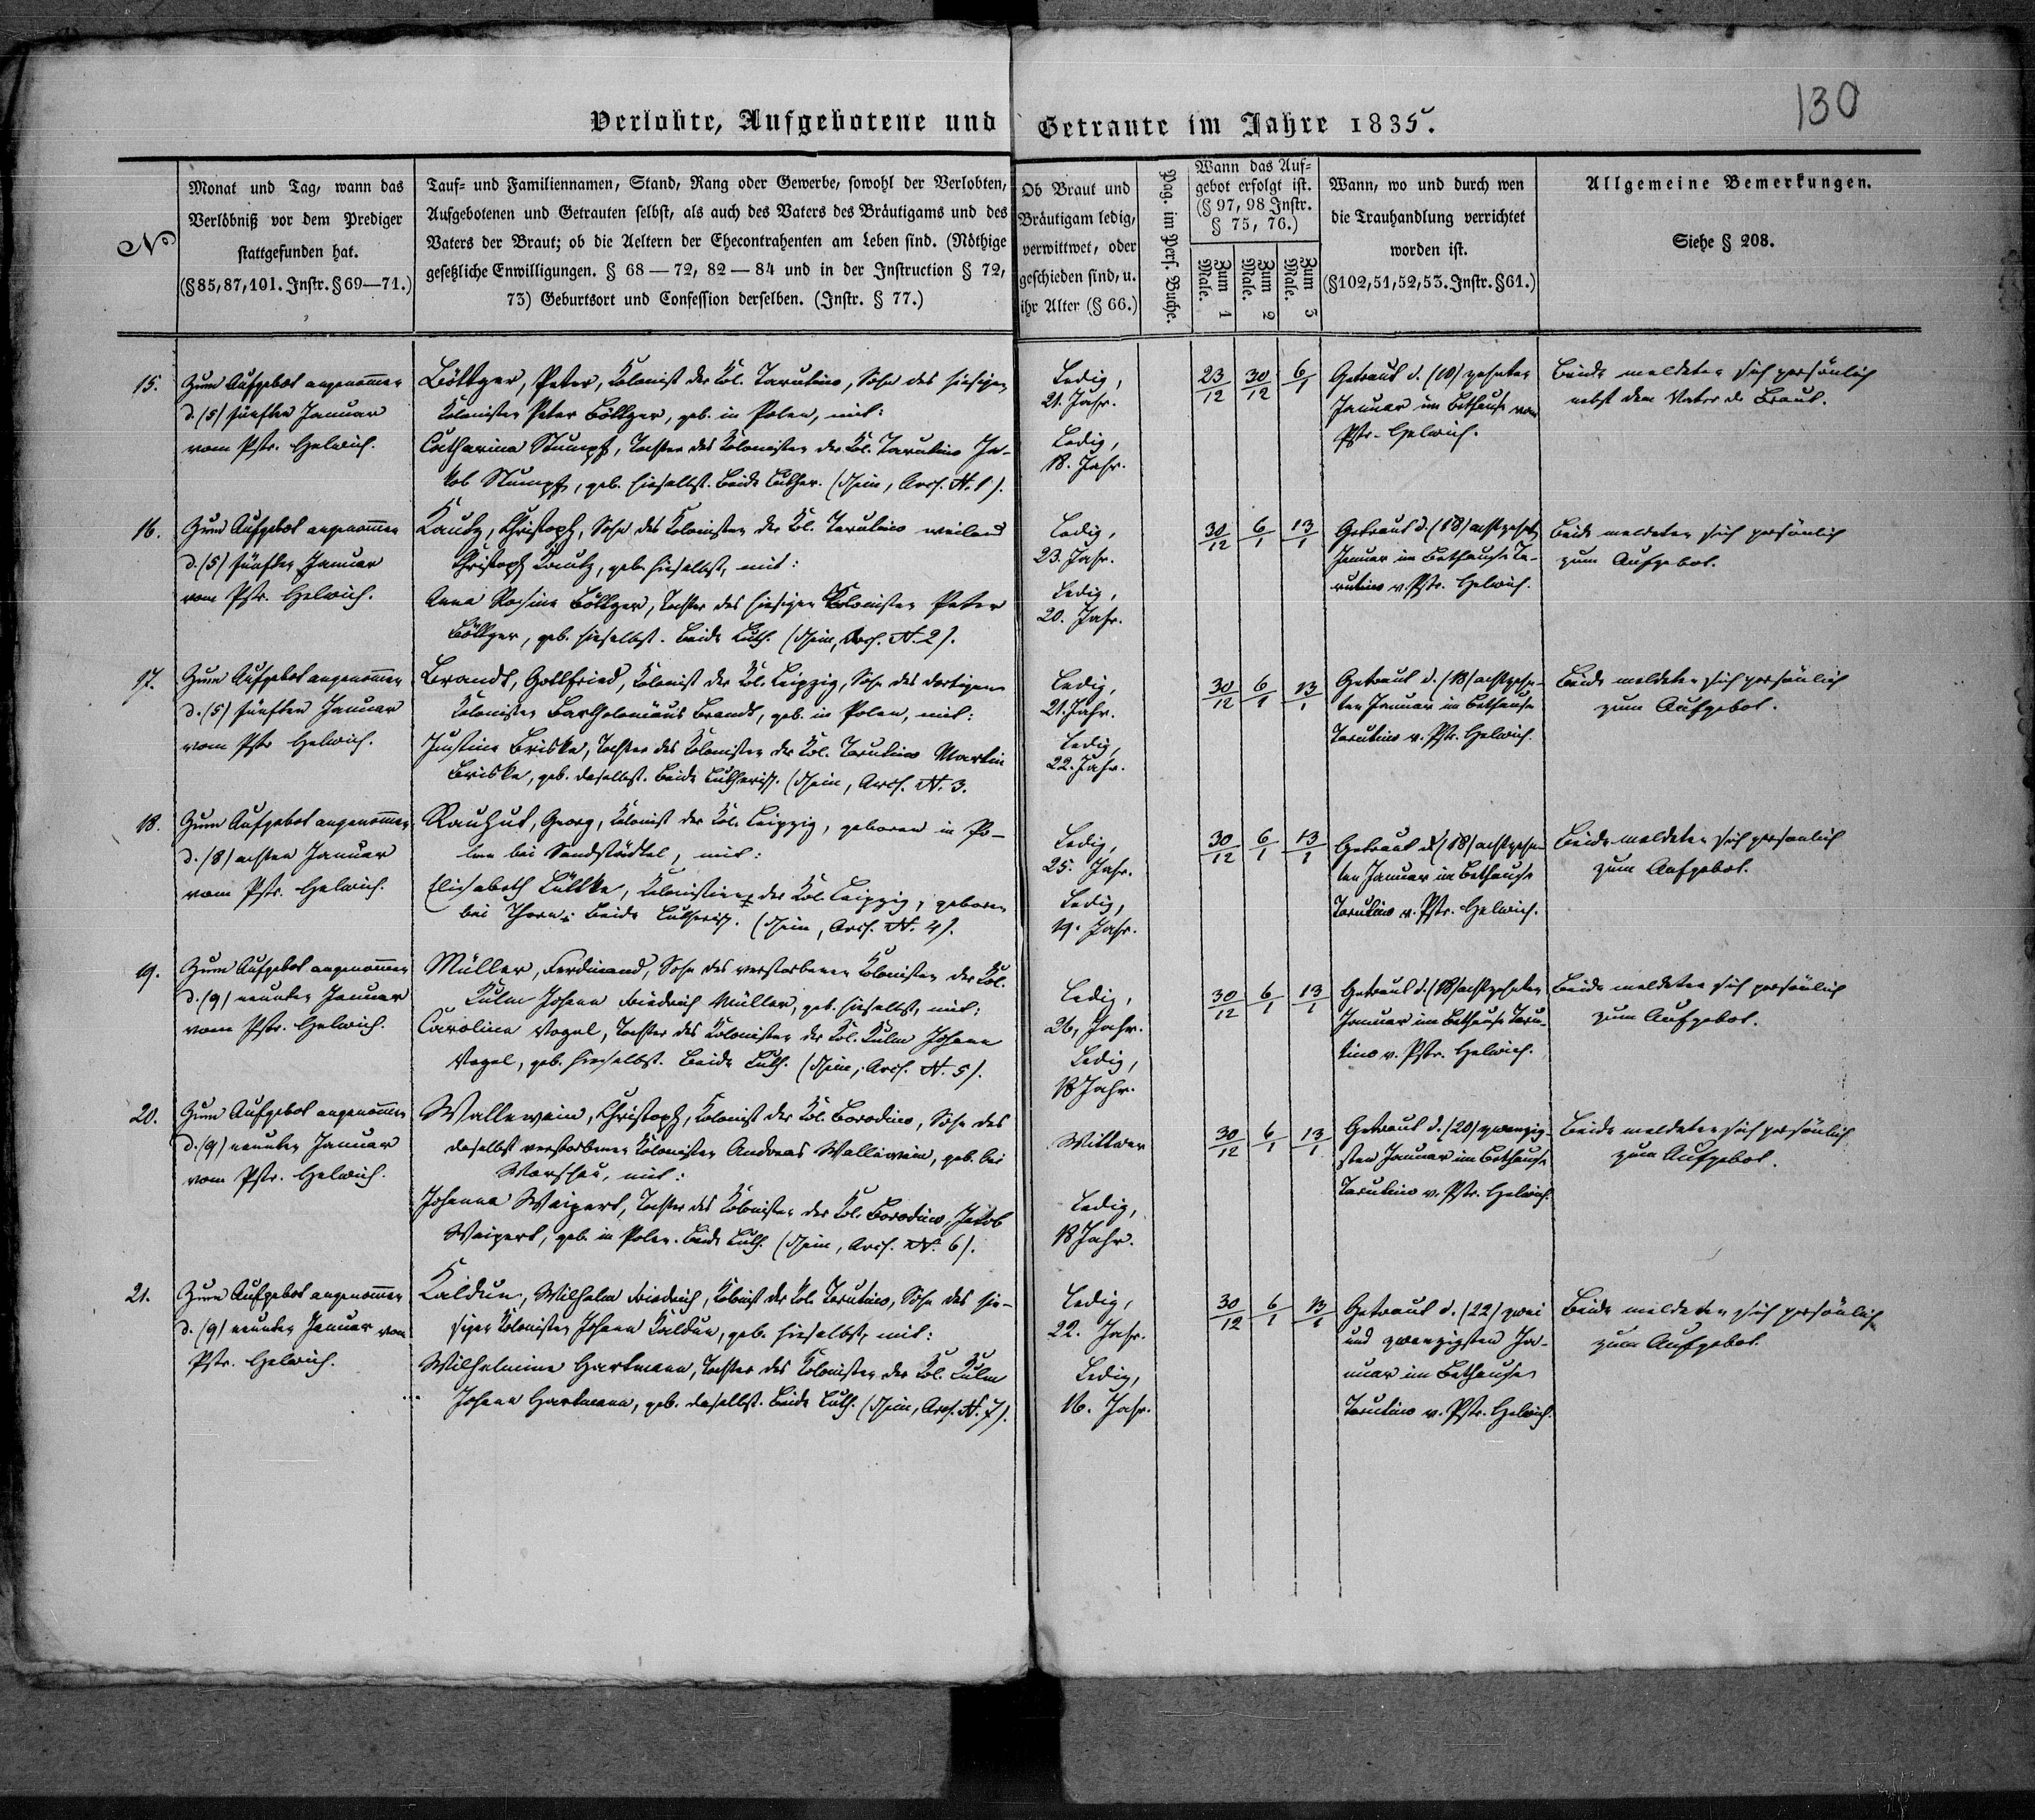 130
Verlobte, Aufgebotene und Getraute im Jahre 1835.
No
Monat und Tag, wann das
Verlöbniß vor dem Prediger
stattgefunden hat.
(§85,87,101. Instr. §69—71.)
Tauf- und Familiennamen, Stand, Rang oder Gewerbe, sowohl der Verlobten,
Aufgebotenen und Getrauten selbst, als auch des Vaters des Bräutigams und des
Vaters der Braut; ob die Aeltern der Ehecontrahenten am Leben sind. (Nöthige
gesetzliche Enwilligungen. § 68—72, 82—84 und in der Instruction § 72,
73) Geburtsort und Confession derselben. (Instr. § 77.)
Ob Braut und
Bräutigam ledig,
verwittwet, oder
geschieden sind, u.
ihr Alter (§ 66.)
Pag. im Pers. Buche.
Wann das Auf-
gebot erfolgt ist.
(§ 97, 98 Instr.
§ 75, 76.)
Zum 1 Male.
Zum 2 Male.
Zum 3 Male.
Wann, wo und durch wen
die Trauhandlung verrichtet
worden ist.
(§102,51,52,53. Instr. §61.)
Allgemeine Bemerkungen.
Siehe § 208.
15.
Zum Aufgebot angenommen
d. (5) fünften Januar
vom Pstr. Helwich.
Böttger, Peter, Kolonist der Kol. Tarutino, Sohn des hiesigen
Kolonisten Peter Böttger, geb. in Polen, mit:
Catharina Stumpf, Tochter des Kolonisten der Kol. Tarutino Ja-
kob Stumpf, geb. hieselbst. Beide Luther. (Schein, Arch. N. 1).
Ledig,
21. Jahr.
Ledig,
18. Jahr.
23/12 30/12 6/1
Getraut d. (10) zehnten
Januar im Bethause vom
Pstr. Helwich.
Beide meldeten sich persönlich
nebst dem Vater der Braut.
16.
Zum Aufgebot angenommen
d. (5) fünften Januar
vom Pstr. Helwich.
Kautz, Christoph, Sohn des Kolonisten der Kol. Tarutino weiland
Christoph Kautz, geb. hieselbst, mit:
Anna Rosina Böttger, Tochter des hiesigen Kolonisten Peter
Böttger, geb. hieselbst. Beide Luth. (Schein, Arch. N. 2).
Ledig,
23. Jahr.
Ledig,
20. Jahr.
30/12 6/1 13/1
Getraut d. (18) achtzehnt
Januar im Bethause Ta-
rutino v. Pstr. Helwich.
Beide meldeten sich persönlich
zum Aufgebot.
17.
Zum Aufgebot angenommen
d. (5) fünften Januar
vom Pstr Helwich.
Brandt, Gottfried, Kolonist der Kol. Leipzig, Sohn des dortigen
Kolonisten Bartholomäus Brandt, geb. in Polen, mit:
Justine Briske, Tochter des Kolonisten der Kol. Tarutino Martin
Briske, geb. daselbst. Beide Lutherisch. (Schein, Arch. N. 3.
Ledig,
21. Jahr.
Ledig,
22. Jahr.
30/12 6/1 13/1
Getraut d. (18) achtzehn-
ten Januar im Bethause
Tarutino v. Pstr. Helwich.
Beide meldeten sich persönlich
zum Aufgebot.
18.
Zum Aufgebot angenommen
d. (8) achten Januar
vom Pstr. Helwich.
Rauhut, Georg, Kolonist der Kol. Leipzig, geboren in Po-
len bei Sandstädtel, mit:
Elisabeth Lüttke, Kolonistin der Kol. Leipzig, geboren
bei Thorn. Beide Lutherisch. (Schein, Arch. N. 4).
Ledig,
25. Jahr.
Ledig,
19. Jahr.
30/12 6/1 13/1
Getraut d. (18) achtzehn-
ten Januar im Bethause
Tarutino v. Pstr. Helwich.
Beide meldeten sich persönlich
zum Aufgebot.
19.
Zum Aufgebot angenommen
d. (9) neunten Januar
vom Pstr. Helwich.
Müller, Ferdinand, Sohn des verstorbenen Kolonisten der Kol.
Kulm Johann Friedrich Müller, geb. hieselbst, mit:
Carolina Vogel, Tochter des Kolonisten der Kol. Kulm Johann
Vogel, geb. hieselbst. Beide Luth. (Schein, Arch. N. 5).
Ledig,
26, Jahr.
Ledig,
18 Jahr.
30/12 6/1 13/1
Getraut d. (18) achtzehnten
Januar im Bethause Taru-
tino v. Pstr. Helwich.
Beide meldeten sich persönlich
zum Aufgebot.
20.
Zum Aufgebot angenommen
d. (9) neunten Januar
vom Pstr. Helwich.
Wallewein, Christoph, Kolonist der Kol. Borodino, Sohn des
daselbst verstorbenen Kolonisten Andreas Wallewein, geb. bei
Warschau, mit:
Johanna Weipert, Tochter des Kolonisten der Kol. Borodino, Jakob
Weipert, geb. in Polen. Beide Luth. (Schein, Arch. N. 6).
Wittwer
Ledig,
18 Jahr.
30/12 6/1 13/1
Getraut d. (20) zwanzig-
sten Januar im Bethause
Tarutino v. Pstr. Helwich.
Beide meldeten sich persönlich
zum Aufgebot.
21.
Zum Aufgebot angenommen
d. (9) neunten Januar vom
Pstr. Helwich.
Kaldun, Wilhelm Friedrich, Kolonist der Kol. Tarutino, Sohn des hie-
sigen Kolonisten Johann Kaldun, geb. hieselbst, mit:
Wilhelmine Hartmann, Tochter des Kolonisten der Kol. Kulm
Johann Hartmann, geb. daselbst. Beide Luth. (Schein, Arch. N. 7).
Ledig,
22. Jahr.
Ledig,
16. Jahr.
30/12 6/1 13/1
Getraut d. (22) zwei
und zwanzigsten Ja-
nuar im Bethause
Tarutino v. Pstr. Helwich.
Beide meldeten sich persönlich
zum Aufgebot.